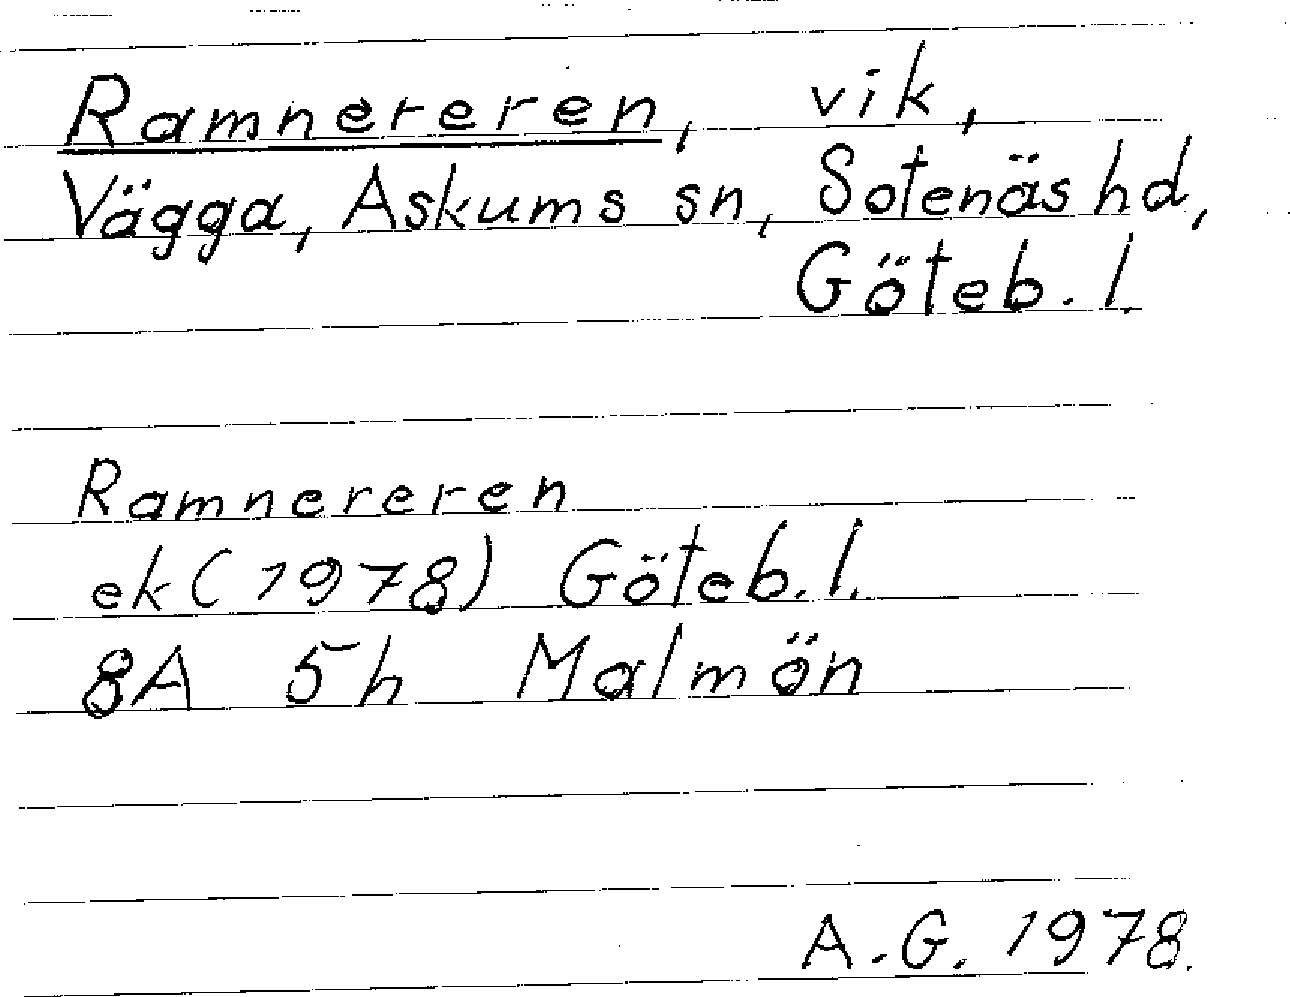 Ramnereren, vik,
Vägga, Askums sn, Sotenäs hd,
Göteb. l.
Ramnereren
ek (1978) Göteb. l.
8A 5h Malmön
A.G. 1978.